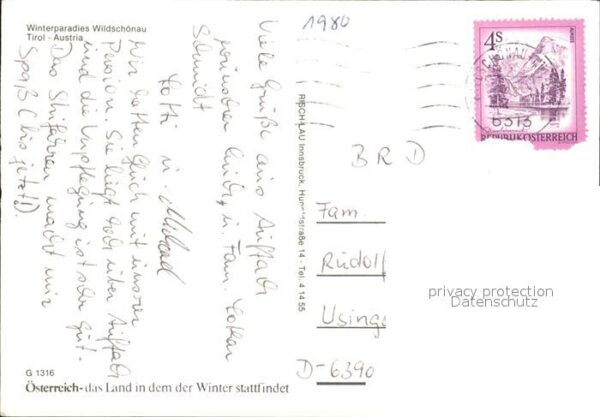 Winterparadies Wildschönau
Tirol - Austria
1980
4 S
REPUBLIK ÖSTERREICH
6313
Viele Grüße aus Auffach
Fam. Lothar
Schmidt
Lotti u. Michael
Wir hatten Glück mit unserer
Pension. Sie liegt hoch über Auffach
und die Verpflegung ist sehr gut.
Das Skifahren macht mir
Spaß (bis jetzt!).
RISCH-LAU Innsbruck, Hunoldstraße 14 - Tel. 4 14 55
BRD
Fam.
Rudolf
Using
D-6390
privacy protection
Datenschutz
G 1316
Österreich - das Land in dem der Winter stattfindet